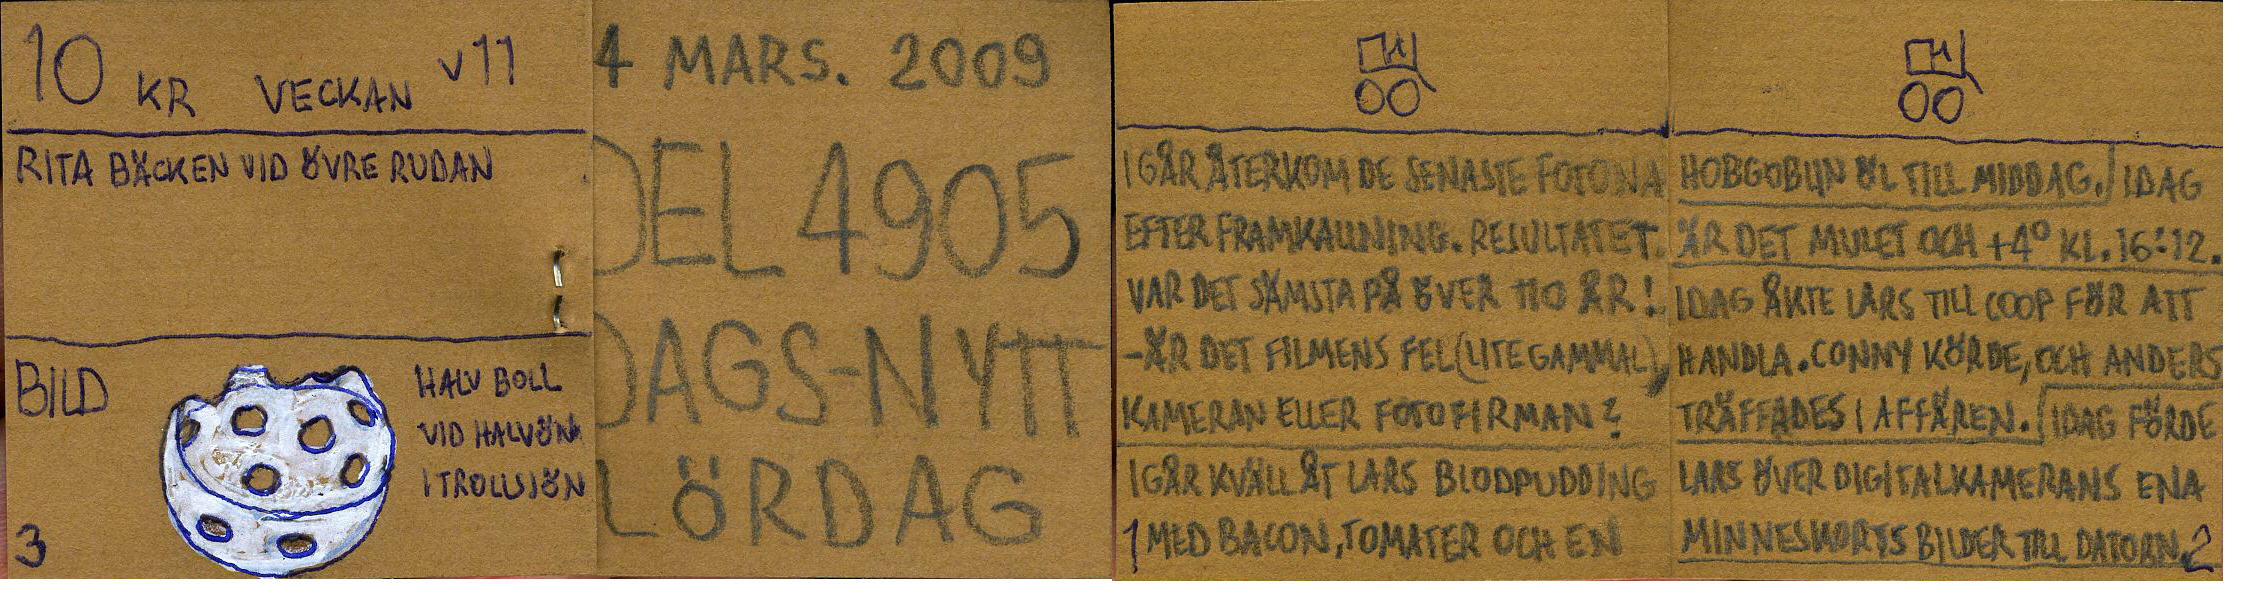 10 KR VECKAN V11
RITA BÄCKEN VID ÖVRE RUDAN
BILD
HALV BOLL
VID HALVÖN
I TROLLSJÖN
3
4 MARS. 2009
DEL 4905
DAGS-NYTT
LÖRDAG
IGÅR ÅTERKOM DE SENASTE FOTONA
EFTER FRAMKALLNING. RESULTATET
VAR DET SÄMSTA PÅ ÖVER 110 ÅR!
-ÄR DET FILMENS FEL (LITE GAMMAL),
KAMERAN ELLER FOTOFIRMAN?
IGÅR KVÄLL ÅT LARS BLODPUDDING
MED BACON, TOMATER OCH EN
1
HOBGOBLIN ÖL TILL MIDDAG. IDAG
ÄR DET MULET OCH +4° KL. 16:12.
IDAG ÅKTE LARS TILL COOP FÖR ATT
HANDLA. CONNY KÖRDE, OCH ANDERS
TRÄFFADES I AFFÄREN. IDAG FÖRDE
LARS ÖVER DIGITALKAMERANS ENA
MINNESKORTS BILDER TILL DATORN.
2